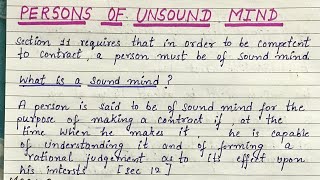 PERSONS OF UNSOUND MIND
Section 11 requires that in order to be competent
to contract, a person must be of sound mind
What is a sound mind?
A person is said to be of sound mind for the
purpose of making a contract if, at the
time when he makes it, he is capable
of understanding it and of forming a
rational judgement as to its effect upon
his intersts [sec 12]